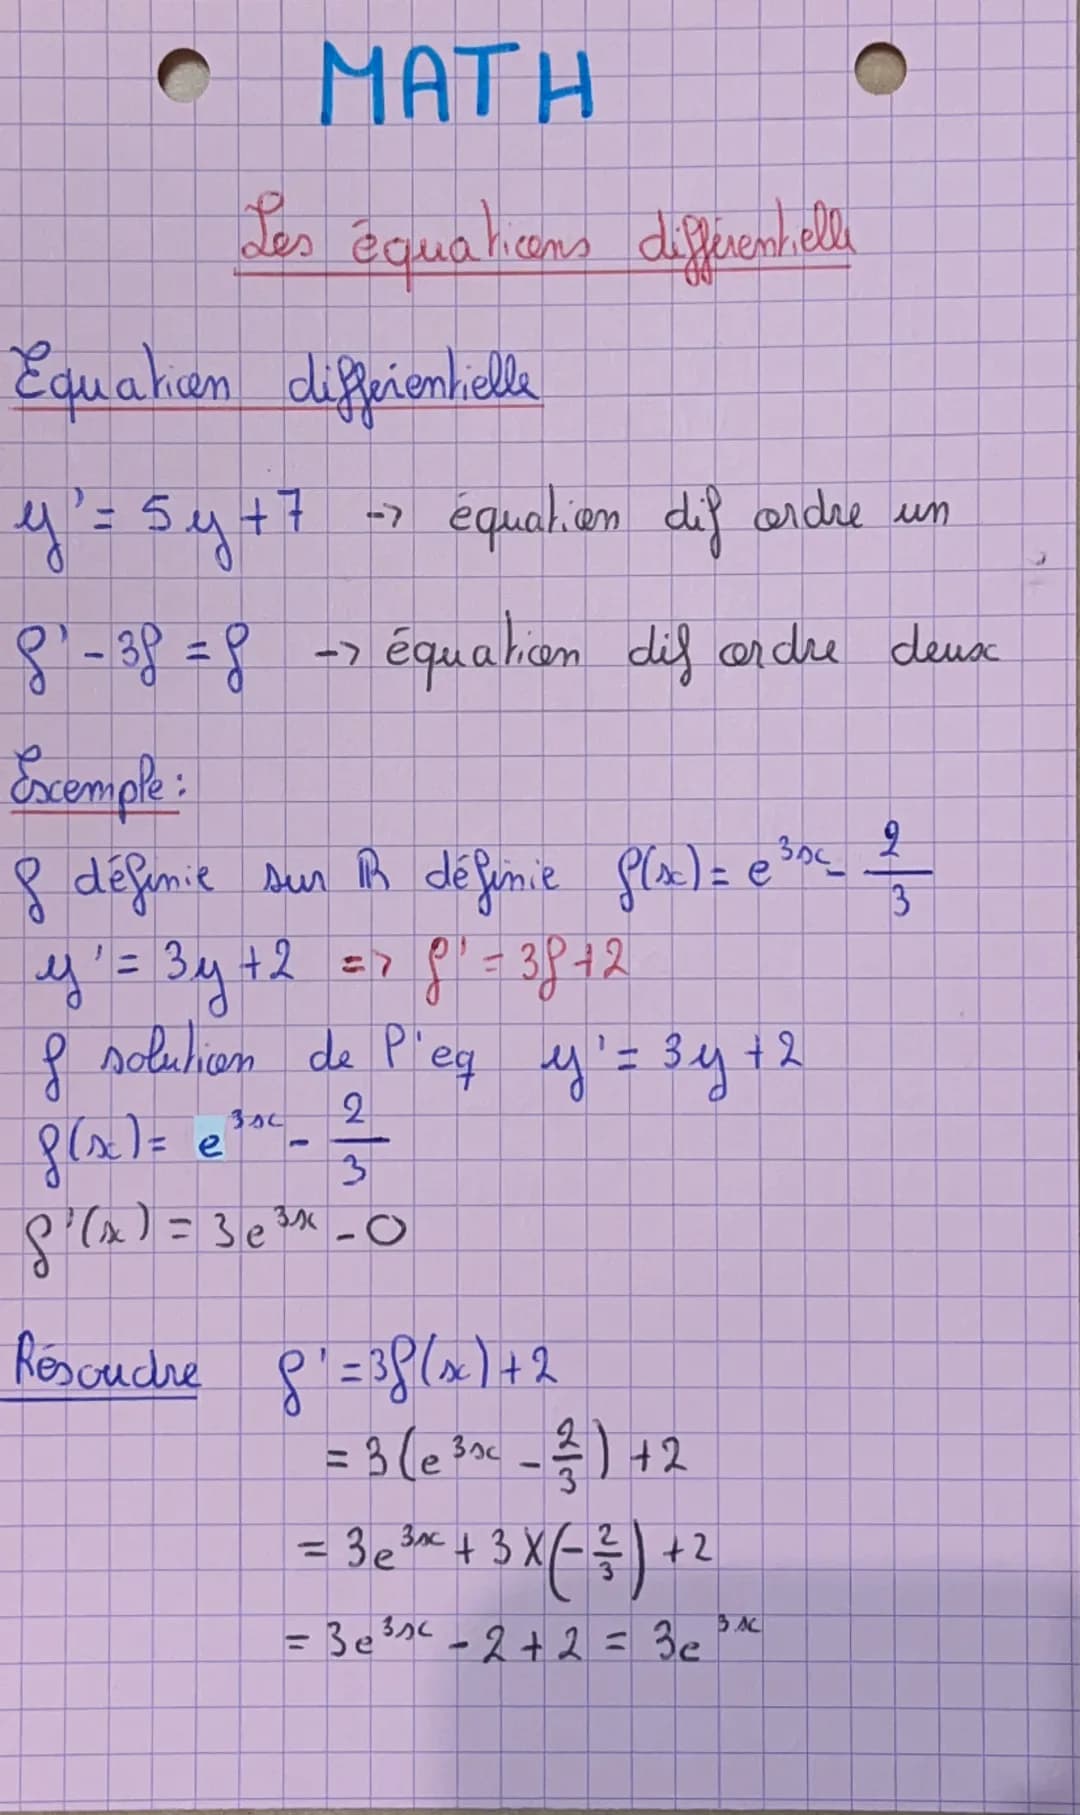 MATH
Les équations différentielle
Equation différentielle
y' = 5y + 7 -> équation dif ordre un
f' - 3f = f -> équation dif ordre deux
Exemple:
f définie sur ℝ définie f(x) = e^3x - 2/3
y' = 3y + 2 => f' = 3f + 2
f solution de l'eq y' = 3y + 2
f(x) = e^3x - 2/3
f'(x) = 3e^3x - 0
Résoudre f' = 3f(x) + 2
= 3(e^3x - 2/3) + 2
= 3e^3x + 3 X (-2/3) + 2
= 3e^3x - 2 + 2 = 3e^3x